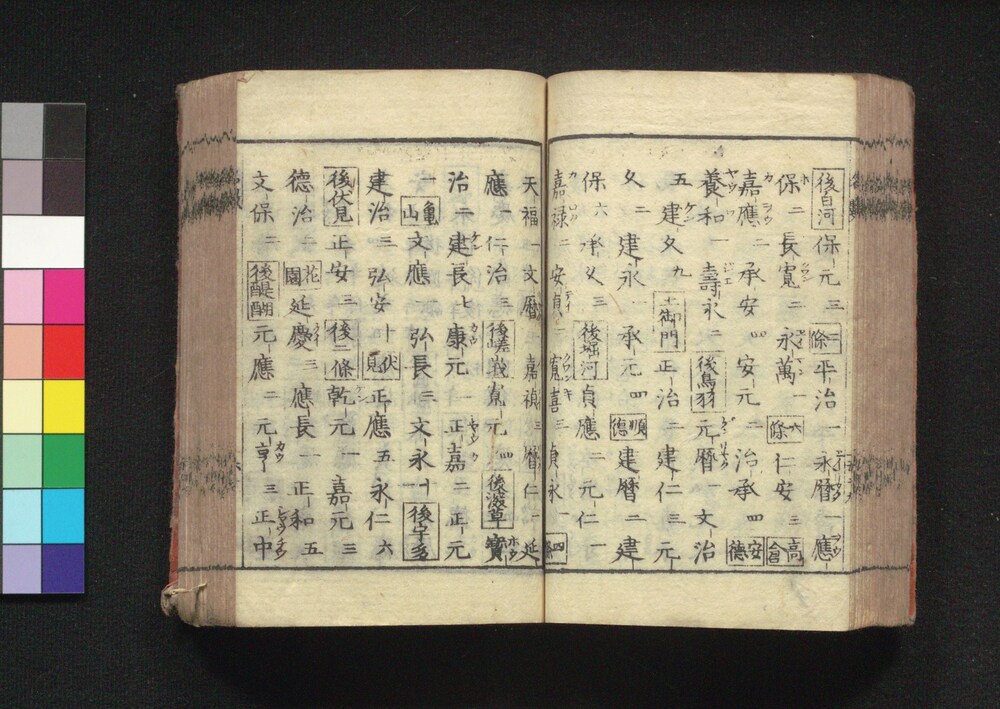 後白河 保元 三 二條 平治 一 永暦 一 應
保 二 長寛 二 永萬 一 六條 仁安 三 高倉
嘉應 二 承安 四 安元 二 治承 四 安德
養和 一 壽永 二 後鳥羽 元暦 一 文治
五 建久 九 土御門 正治 二 建仁 三 元
久 二 建永 一 承元 四 順德 建暦 二 建
保 六 承久 三 後堀河 貞應 二 元仁 一
嘉禄 二 安貞 二 寛喜 三 貞永 一 四條
天福 一 文暦 一 嘉禎 三 暦仁 一 延
應 一 仁治 三 後嵯峨 寛元 四 後深草 寶
治 二 建長 七 康元 一 正嘉 二 正元
一 亀山 文應 一 弘長 三 文永 十一 後宇多
建治 三 弘安 十 伏見 正應 五 永仁 六
後伏見 正安 三 後二條 乾元 一 嘉元 三
德治 二 花園 延慶 三 應長 一 正和 五
文保 二 後醍醐 元應 二 元亨 三 正中